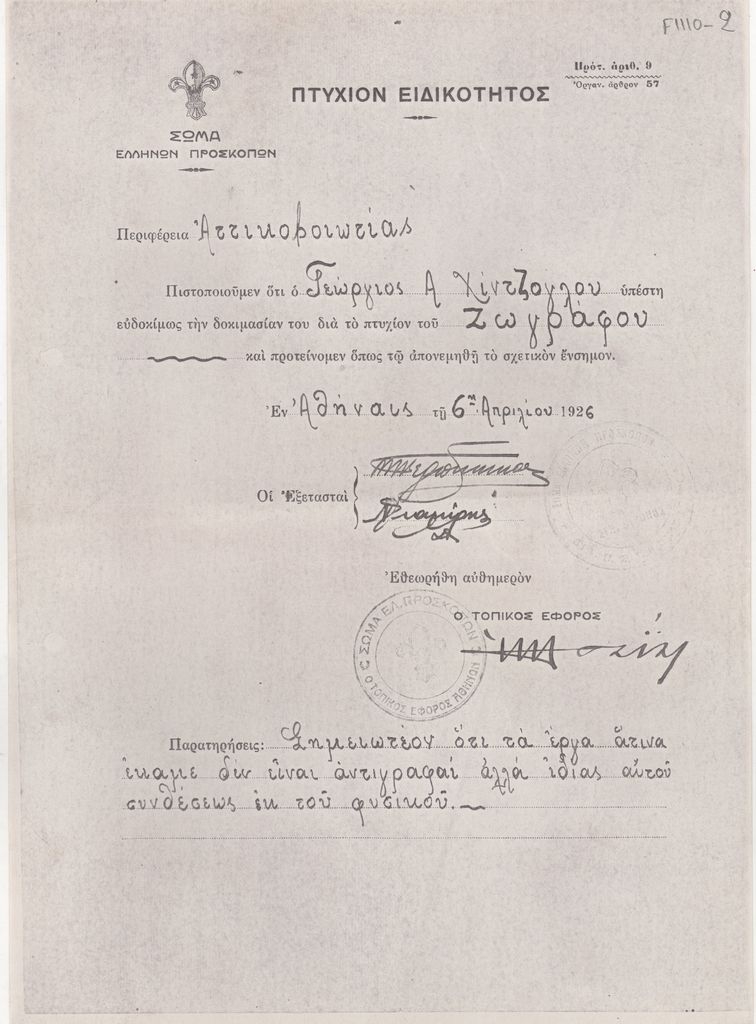 F1110-2
Πρότ. ἀριθ. 9
Ὀργαν. ἄρθρον 57
ΠΤΥΧΙΟΝ ΕΙΔΙΚΟΤΗΤΟΣ
ΣΩΜΑ
ΕΛΛΗΝΩΝ ΠΡΟΣΚΟΠΩΝ
Περιφέρεια Ἀττικοβοιωτίας
Πιστοποιοῦμεν ὅτι ὁ Γεώργιος Α Χίντζογλου ὑπέστη
εὐδοκίμως τὴν δοκιμασίαν του διὰ τὸ πτυχίον τοῦ Ζωγράφου
καὶ προτείνομεν ὅπως τῷ ἀπονεμηθῇ τὸ σχετικὸν ἔνσημον.
Ἐν Ἀθήναις τῇ 6ην Ἀπριλίου 1926
Οἱ Ἐξετασταὶ
Ἐθεωρήθη αὐθημερὸν
Ο ΤΟΠΙΚΟΣ ΕΦΟΡΟΣ
ΣΩΜΑ ΕΛ. ΠΡΟΣΚΟΠΩΝ
Ο ΤΟΠΙΚΟΣ ΕΦΟΡΟΣ ΑΘΗΝΩΝ
Παρατηρήσεις: Σημειωτέον ὅτι τὰ ἔργα ἅτινα
ἔκαμε δὲν εἶναι ἀντιγραφαί ἀλλά ἰδίας αὐτοῦ
συνθέσεως ἐκ τοῦ φυσικοῦ.